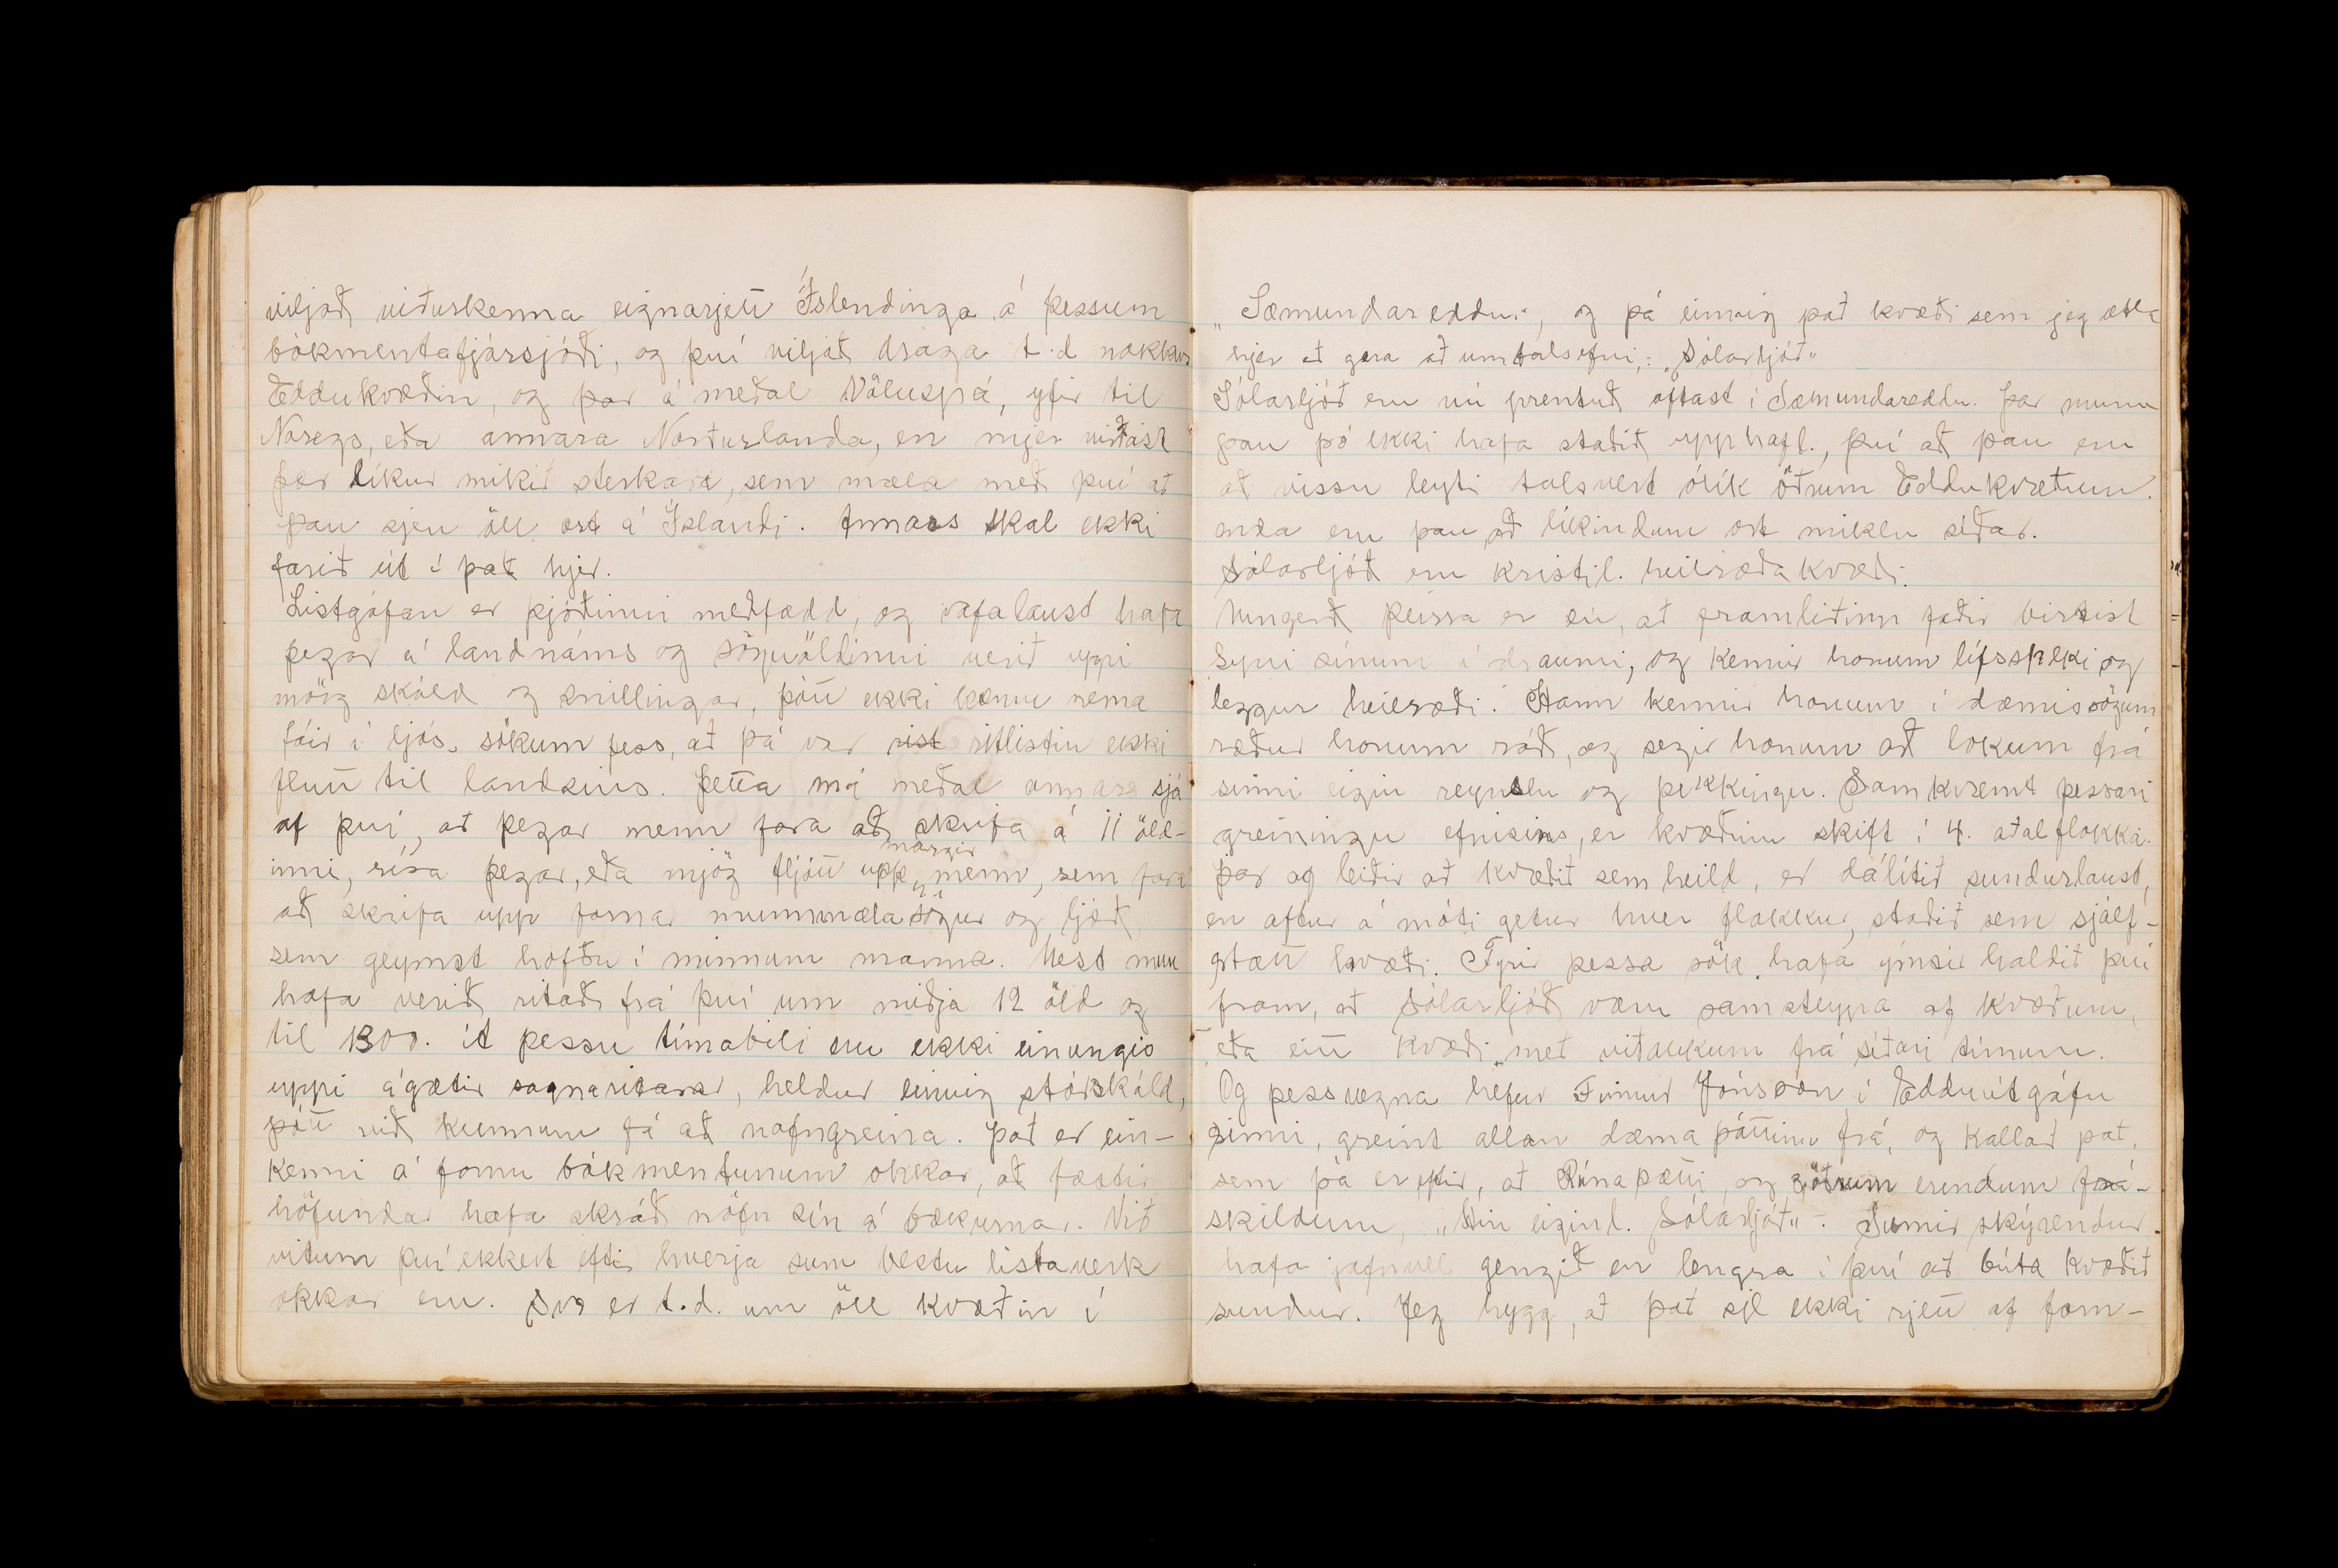 viljað viðurkenna eignarjett Íslendinga á þessum
bókmentafjársjóði, og því viljað draga t.d nokkur
Eddukvæðin, og þar á meðal Völuspá, yfir til
Noregs, eða annara Norðurlanda, en mjer virðast
þær líkur mikið sterkara, sem mæla með því að
þau sjeu öll ort á Íslandi. Annars skal ekki
farið út í það hjer.
Listgáfan er þjóðinni meðfædd, og vafalaust hafa
þegar á landnáms og söguöldinni verið uppi
mörg skáld og snillingar, þótt ekki komu nema
fáir í ljós, sökum þess, að þá var rist ritlistin ekki
flutt til landsins. Þetta má meðal annars sjá
af því, að þegar menn fara að skrifa á 11 öld-
inni, rísa þegar, eða mjög fljótt upp margir menn, sem fara
að skrifa upp fornar munnmælasögur og ljóð
sem geymst höfðu í minnum manna. Mest mun
hafa verið ritað frá því um miðja 12 öld og
til 1300. Á þessu tímabili eru ekki einungis
uppi ágætir sagnaritarar, heldur einnig stórskáld,
þótt við kunnum fá að nafngreina. Það er ein-
kenni á fornu bókmentunum okkar, að fæstir
höfundar hafa skráð nöfn sín á bækurnar. Við
vitum því ekkert eftir hverja sum bestu listaverk
okkar eru. Svo er t.d. um öll kvæðin í
„Sæmundareddu", og þá einnig það kvæði sem jeg ætla
hjer að gera að umtalsefni,: „Sólarljóð"
Sólarljóð eru nú prentuð oftast í Sæmundareddu. Þar munu
þau þó ekki hafa staðið upphafl., því að þau eru
að vissu leyti talsvert ólík öðrum Eddukvæðum.
enda eru þau að líkindum ort miklu síðar.
Sólarljóð eru kristil. heilræðakvæði.
Umgerð þeirra er sú, að framliðinn faðir birtist
syni sínum í draumi, og kennir honum lífsspeki og
leggur heilræði. Hann kennir honum í dæmisögum
ræður honum ráð, og segir honum að lokum frá
sinni eigin reynslu og þekkingu. Samkvæmt þessari
greiningu efnisins, er kvæðinu skift í 4. aðalflokka.
Þar og leiðir að kvæðið sem heild, er dálítið sundurlaust,
en aftur á móti getur hver flokkur, staðið sem sjálf-
stætt kvæði. Fyrir þessa sök, hafa ýmsir haldið því
fram, að Sólarljóð væru samsteypa af kvæðum,
eða eitt kvæði, með viðaukum frá síðari tímum.
Og þessvegna hefur Finnur Jónsson, í Edduútgáfu
sinni, greint allan dæmaþáttinn frá, og kallað það,
sem þá er eftir, að Rúnaþætti, og 3 öðrum erindum frá-
skildum, „Hin eiginl. Sólarljóð". Sumir skýrendur
hafa jafnvel gengið en lengra í því að búta kvæðið
sundur. Jeg hygg, að það sje ekki rjett af forn-